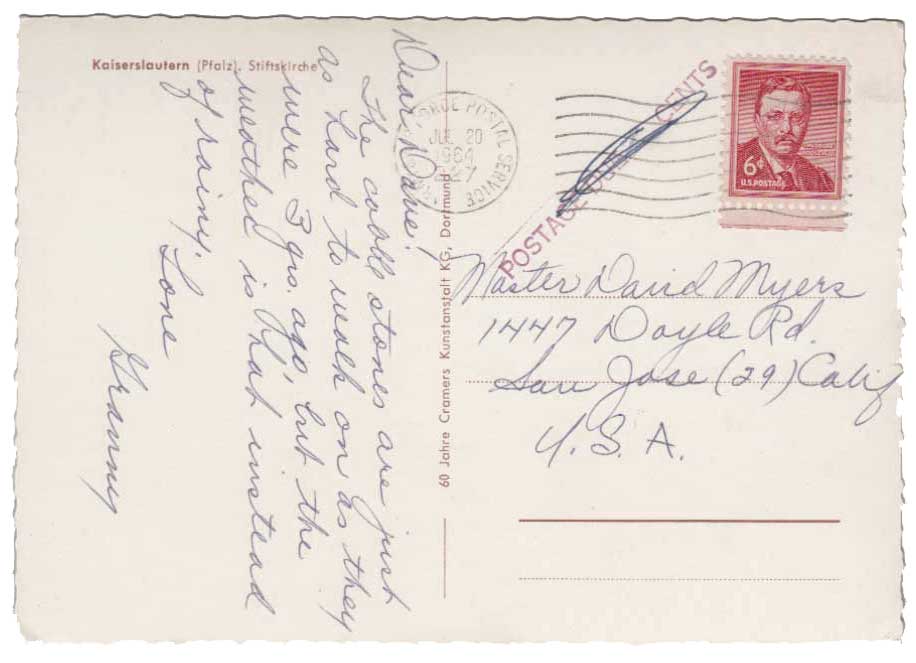 Kaiserslautern (Pfalz), Stiftskirche
Dear Dave!
The cobble stones are just
as hard to walk on as they
were 3 yrs. ago, but the
weather is hot instead
of rainy.
Love
Granny
60 Jahre Cramers Kunstanstalt KG, Dortmund
FORCE POSTAL SERVICE
JUL 20
1964
POSTAGE CENTS
6¢
U.S. POSTAGE
Master David Myers
1447 Doyle Rd.
San Jose (29) Calif
U.S.A.